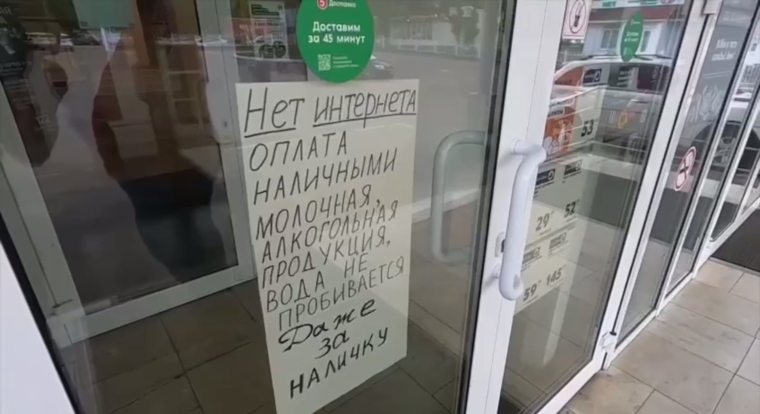 5 Доставка
Доставим
за 45 минут
Нет интернета
ОПЛАТА
НАЛИЧНЫМИ
МОЛОЧНАЯ,
АЛКОГОЛЬНАЯ
ПРОДУКЦИЯ,
ВОДА НЕ
ПРОБИВАЕТСЯ
Даже
за
НАЛИЧКУ
53
29
52
59
145